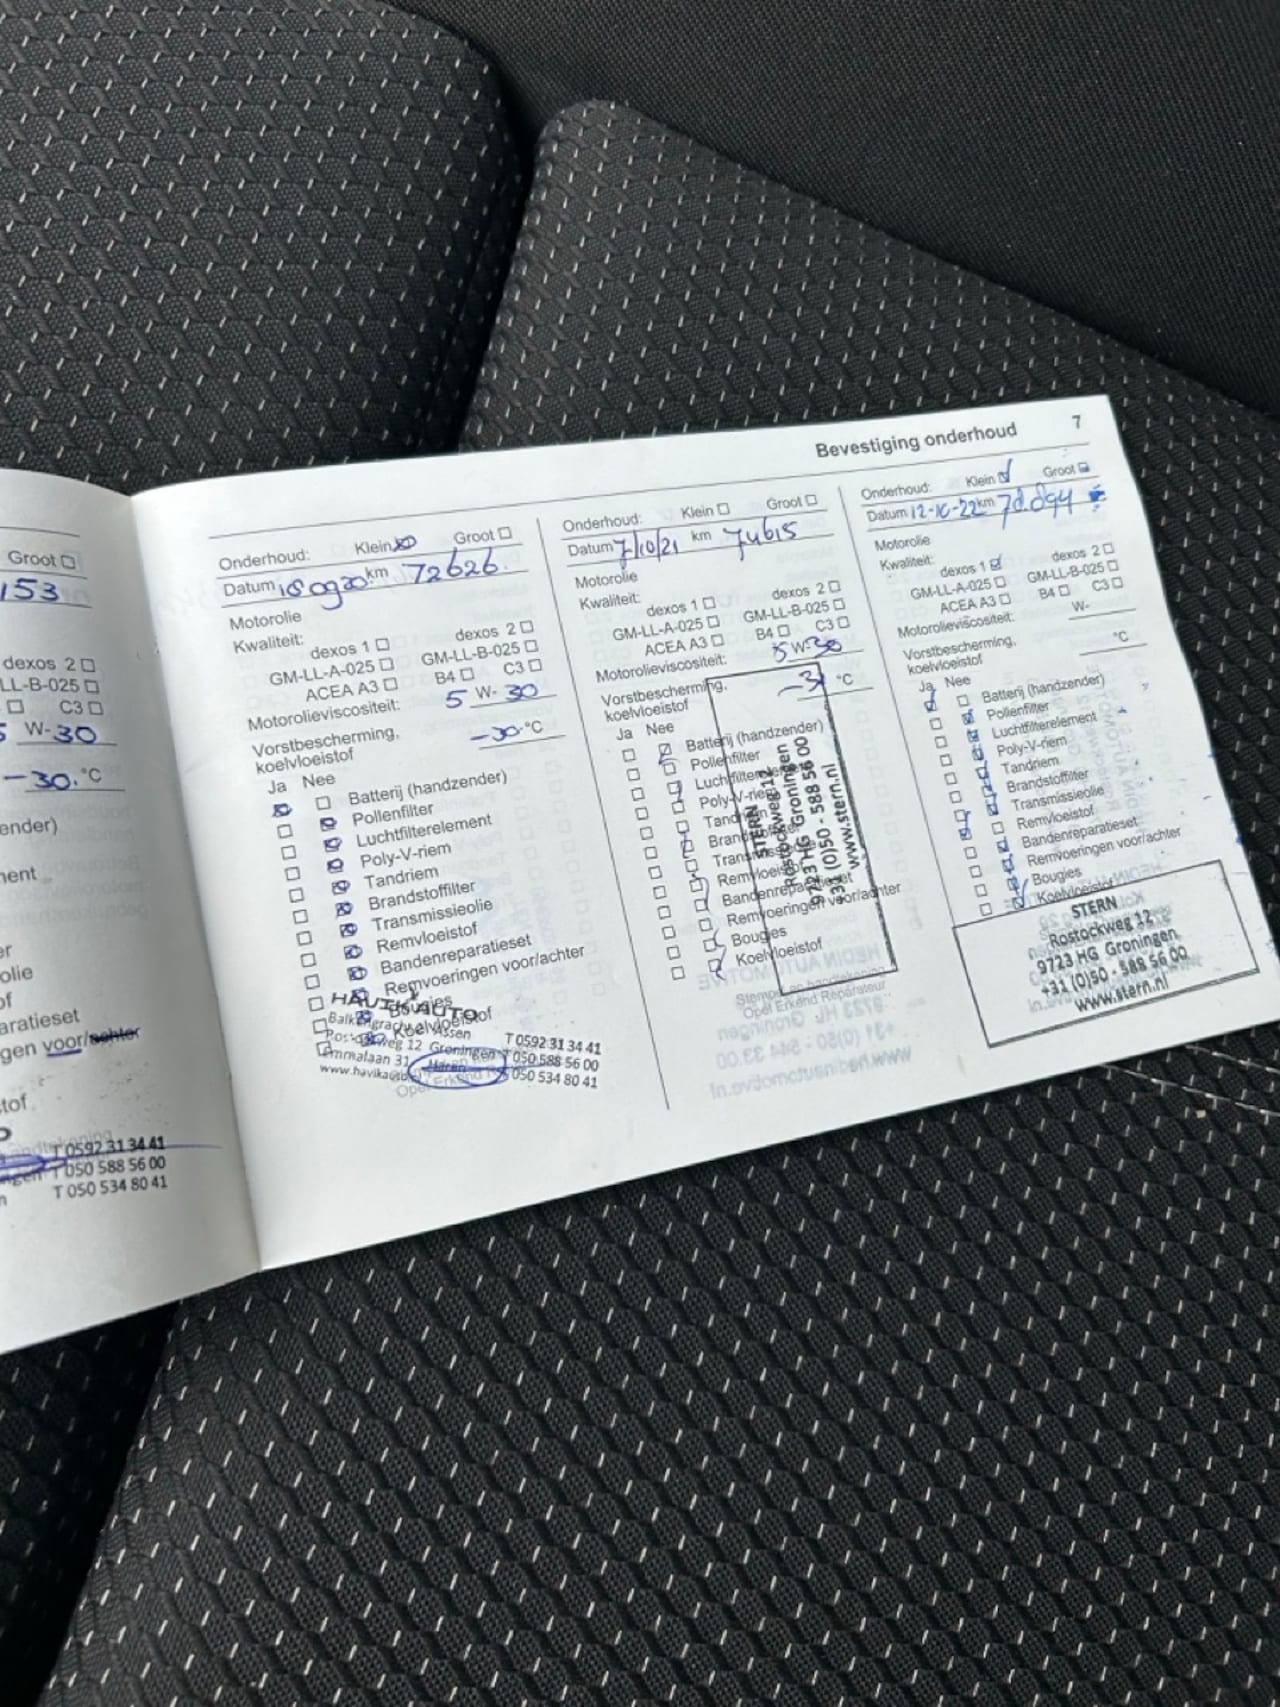 Groot
153
dexos 2
LL-B-025
C3
5 W-30
-30. °C
ender)
ment
er
olie
of
aratieset
gen voor/achter
stof
T 0592 31 34 41
T 050 588 56 00
T 050 534 80 41
Bevestiging onderhoud 7
Onderhoud: Klein Groot
Datum 18 09 20 km 72626.
Motorolie
Kwaliteit: dexos 1 dexos 2
GM-LL-A-025 GM-LL-B-025
ACEA A3 B4 C3
Motorolieviscositeit: 5 W-30
Vorstbescherming, -30 °C
koelvloeistof
Ja Nee
Batterij (handzender)
Pollenfilter
Luchtfilterelement
Poly-V-riem
Tandriem
Brandstoffilter
Transmissieolie
Remvloeistof
Bandenreparatieset
Remvoeringen voor/achter
Bougies
Koelvloeistof
HAVIKAUTO
Balkengracht Assen T 0592 31 34 41
Groningen T 050 588 56 00
Emmalaan 31 Haren T 050 534 80 41
Opel Erkend
Onderhoud: Klein Groot
Datum 7/10/21 km 74615
Motorolie
Kwaliteit: dexos 1 dexos 2
GM-LL-A-025 GM-LL-B-025
ACEA A3 B4 C3
Motorolieviscositeit: 5 W-30
Vorstbescherming, -31 °C
koelvloeistof
Ja Nee
Batterij (handzender)
Pollenfilter
Luchtfilterelement
Poly-V-riem
Tandriem
Brandstoffilter
Transmissieolie
Remvloeistof
Bandenreparatieset
Remvoeringen voor/achter
Bougies
Koelvloeistof
Stempel en handtekening
Opel Erkend Reparateur
STERN
Rostockweg 12
9723 HG Groningen
+31 (0)50 - 588 56 00
www.stern.nl
Onderhoud: Klein Groot
Datum 12-10-22 km
Motorolie
Kwaliteit: dexos 1 dexos 2
GM-LL-A-025 GM-LL-B-025
ACEA A3 B4 C3
Motorolieviscositeit: W-
Vorstbescherming, °C
koelvloeistof
Ja Nee
Batterij (handzender)
Pollenfilter
Luchtfilterelement
Poly-V-riem
Tandriem
Brandstoffilter
Transmissieolie
Remvloeistof
Bandenreparatieset
Remvoeringen voor/achter
Bougies
Koelvloeistof
STERN
Rostockweg 12
9723 HG Groningen
+31 (0)50 - 588 56 00
www.stern.nl